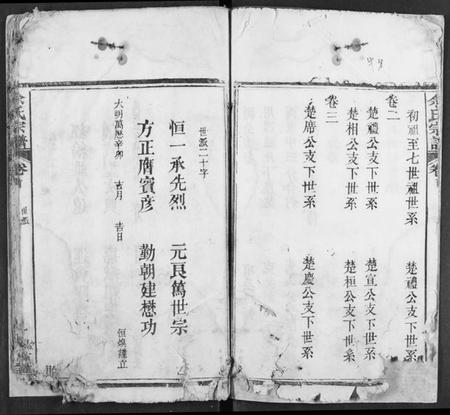 初祖至七世祖世系 楚禮公支下世系
卷二
楚禮公支下世系 楚宣公支下世系
楚相公支下世系 楚桓公支下世系
卷三
楚席公支下世系 楚慶公支下世系
世派二十字
恒一承先烈 元良萬世宗
方正膺寶彥 勤朝建懋功
大明萬曆辛卯 吉月 吉日
余氏宗譜
卷首
世派